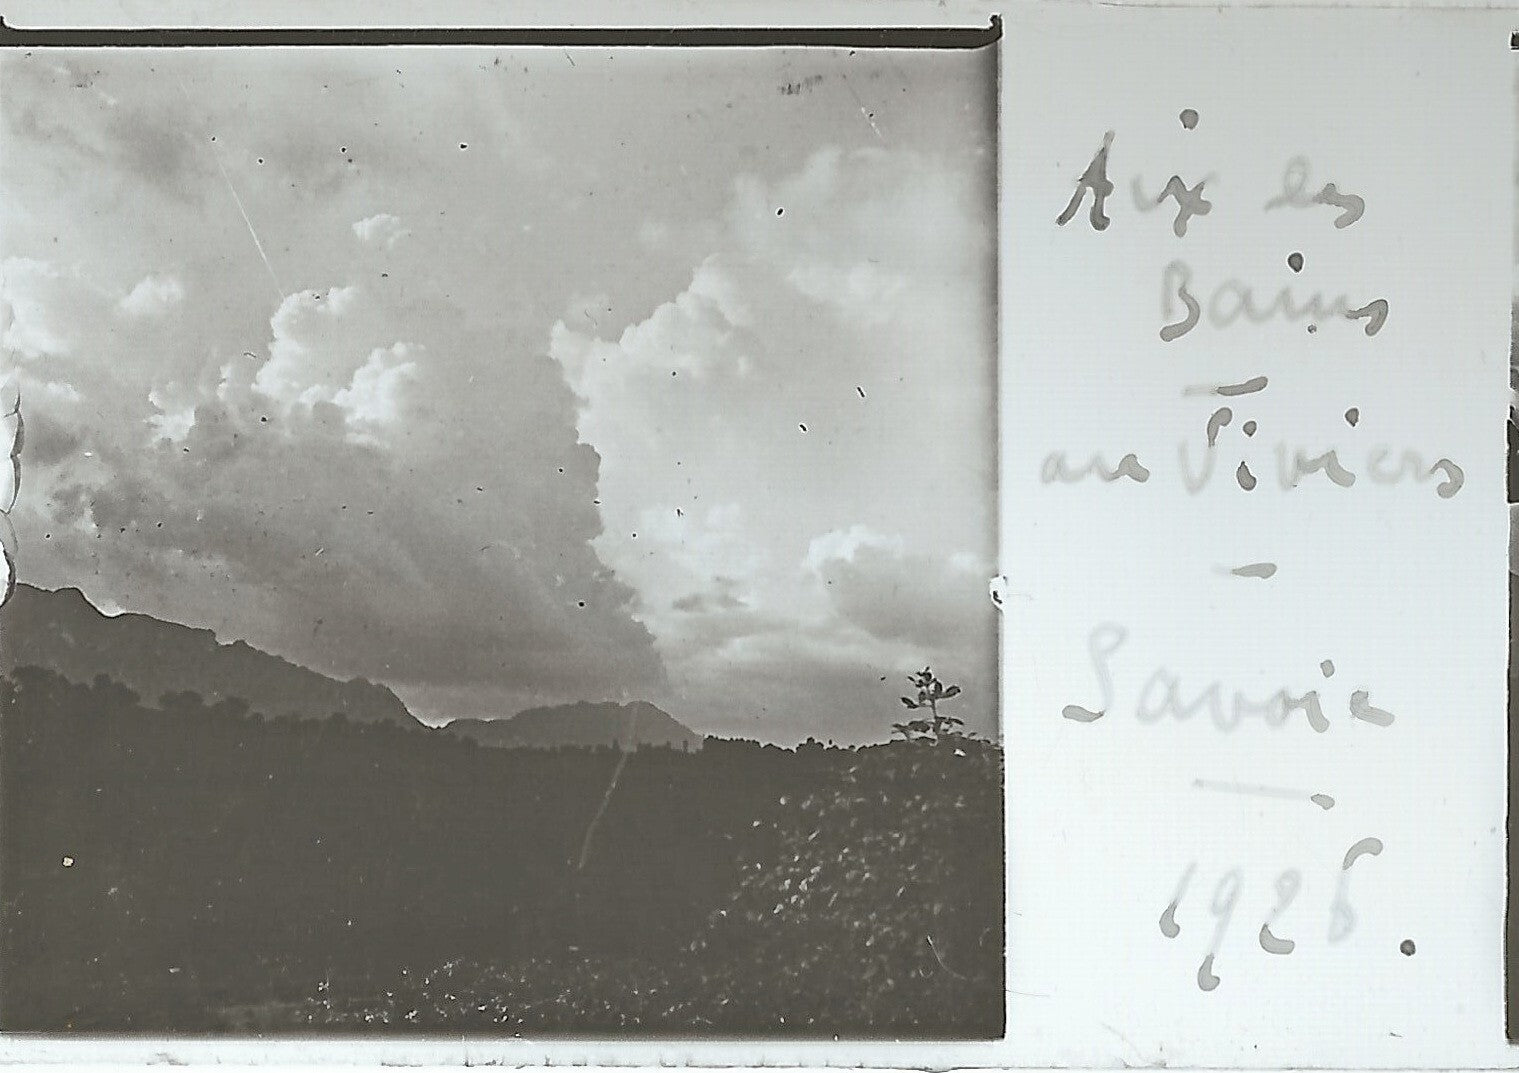 Aix les
Bains
—
au Viviers
—
Savoie
—
1926.